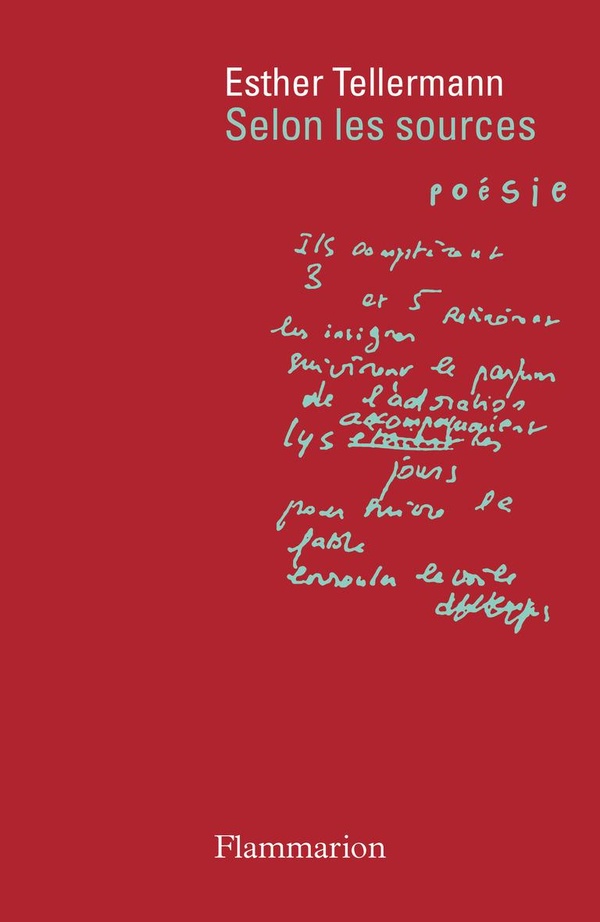 Esther Tellermann
Selon les sources
poésie
Ils comptèrent
3
et 5 Retirèrent
les insignes
suivirent le parfum
de l'adoration
accompagnaient
lys les
jours
pour suivre la
fable
enrouler le voile